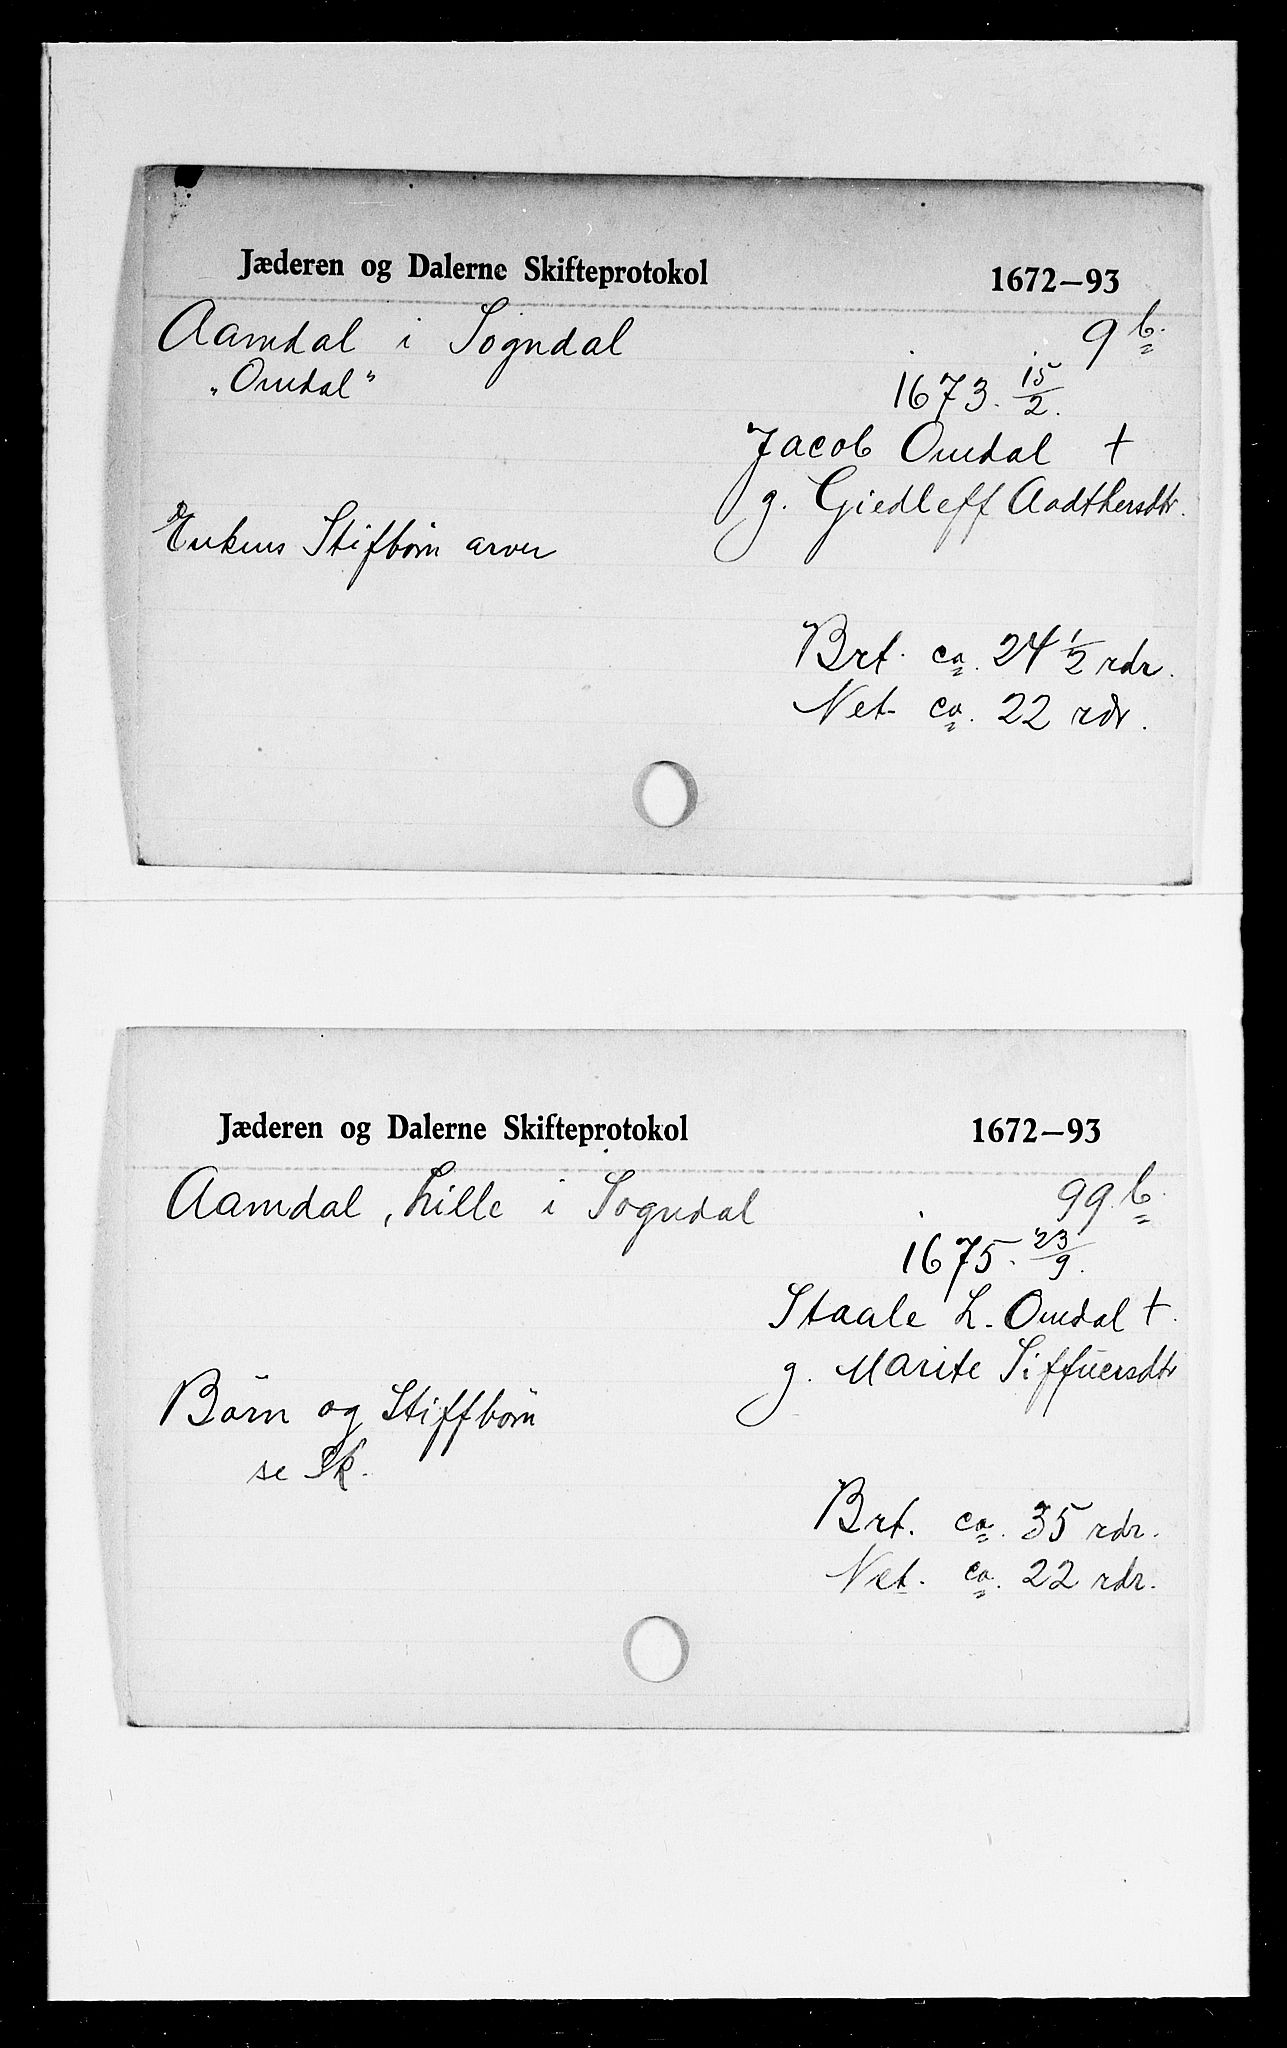 Jæderen og Dalerne Skifteprotokol 1672–93
Aamdal i Sogndal 9 b.
"Omdal"
1673. 15/2.
Jacob Omdal †
g. Giedleff Aadthersdtr.
Enkens Stifbørn arver
Brt. ca. 24 1/2 rdr.
Net. ca. 22 rdr.
Jæderen og Dalerne Skifteprotokol 1672–93
Aamdal, Lille i Sogndal 99 b.
1675. 23/9.
Staale L. Omdal †.
g. Marite Siffuersdtr
Børn og Stiffbørn
se Sk.
Brt. ca. 35 rdr.
Net. ca. 22 rdr.